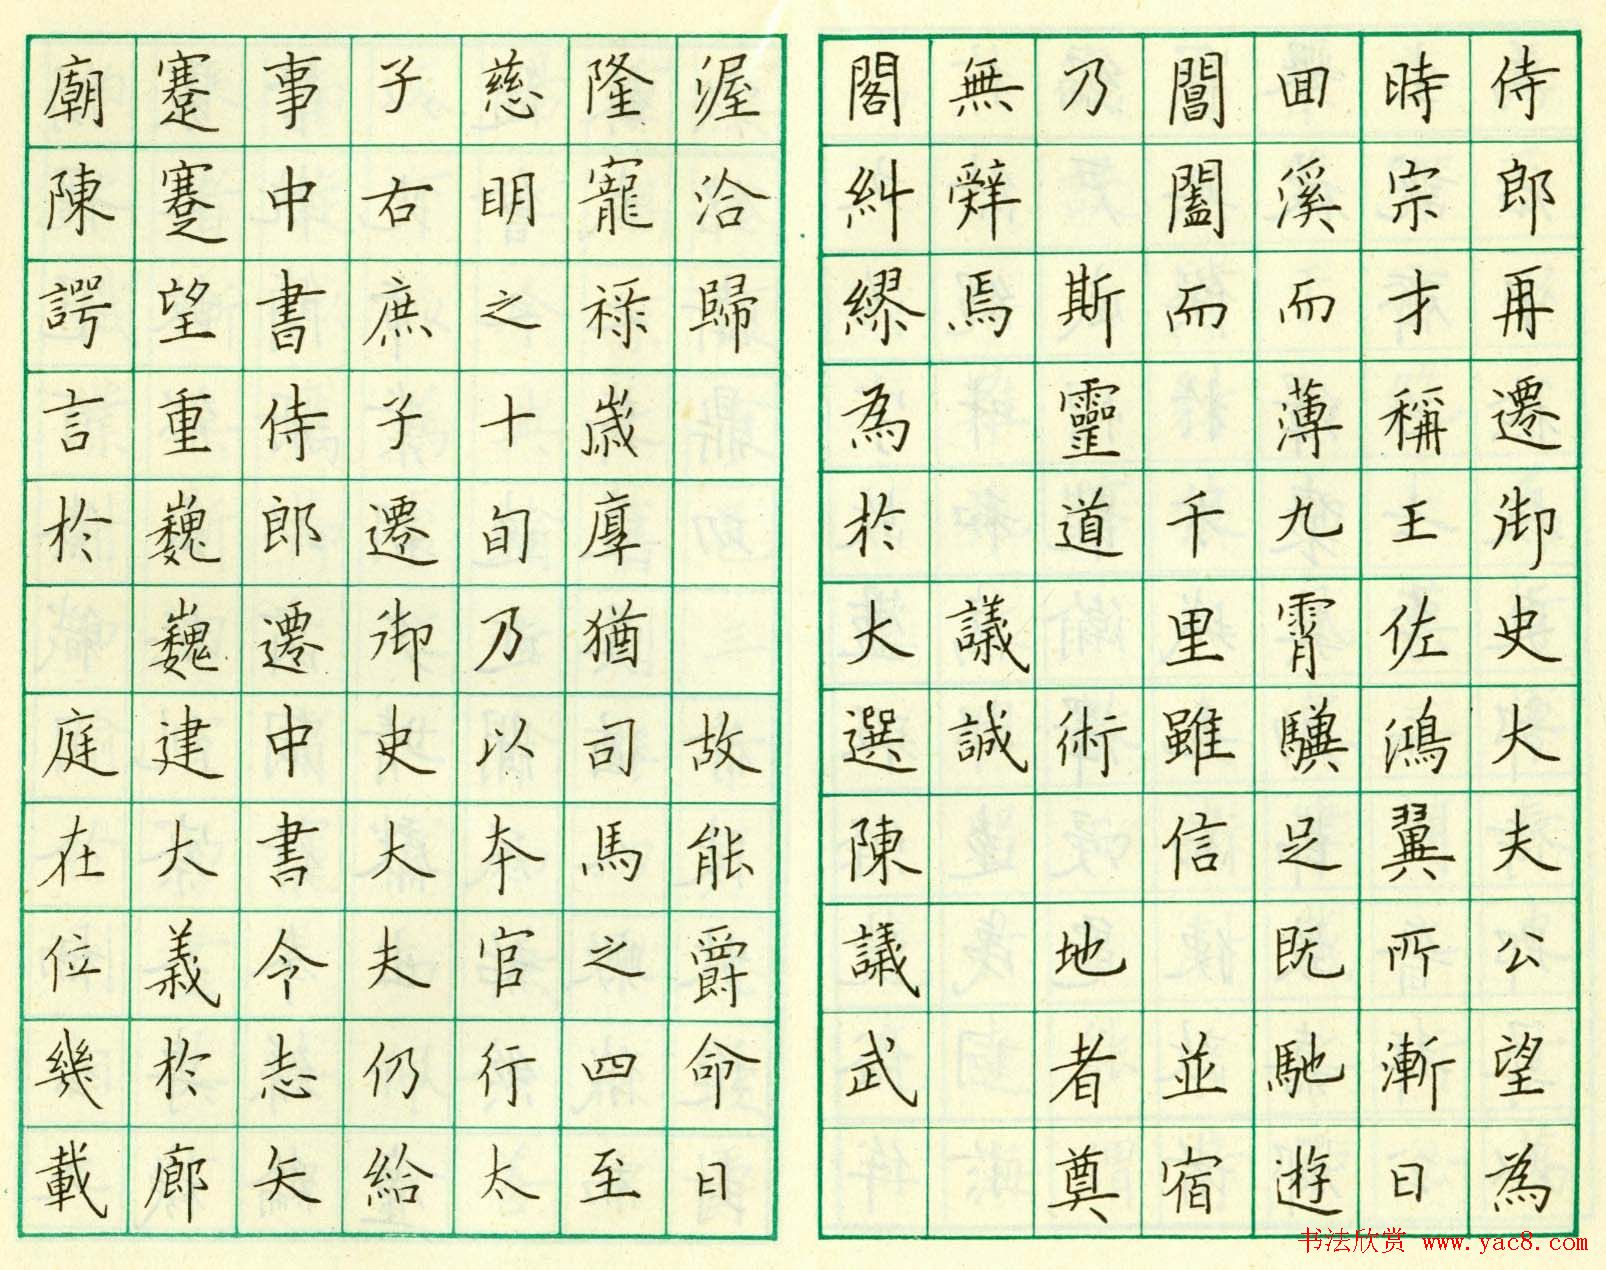 侍郎再遷御史大夫公望為
時宗才稱王佐鴻翼所漸日
囬溪而薄九霄驥足既馳遊
閶闔而千里雖信並宿
乃斯靈道術地者奠
無辤焉議誠
閣糾繆為於大選陳議武
渥洽歸故能爵命日
隆寵祿歲厚猶司馬之四至
慈明之十旬乃以本官行太
子右庶子遷御史大夫仍給
事中書侍郎遷中書令志矢
蹇蹇望重巍巍建大義於廊
廟陳諤言於庭在位幾載
书法欣赏 www.yac8.com